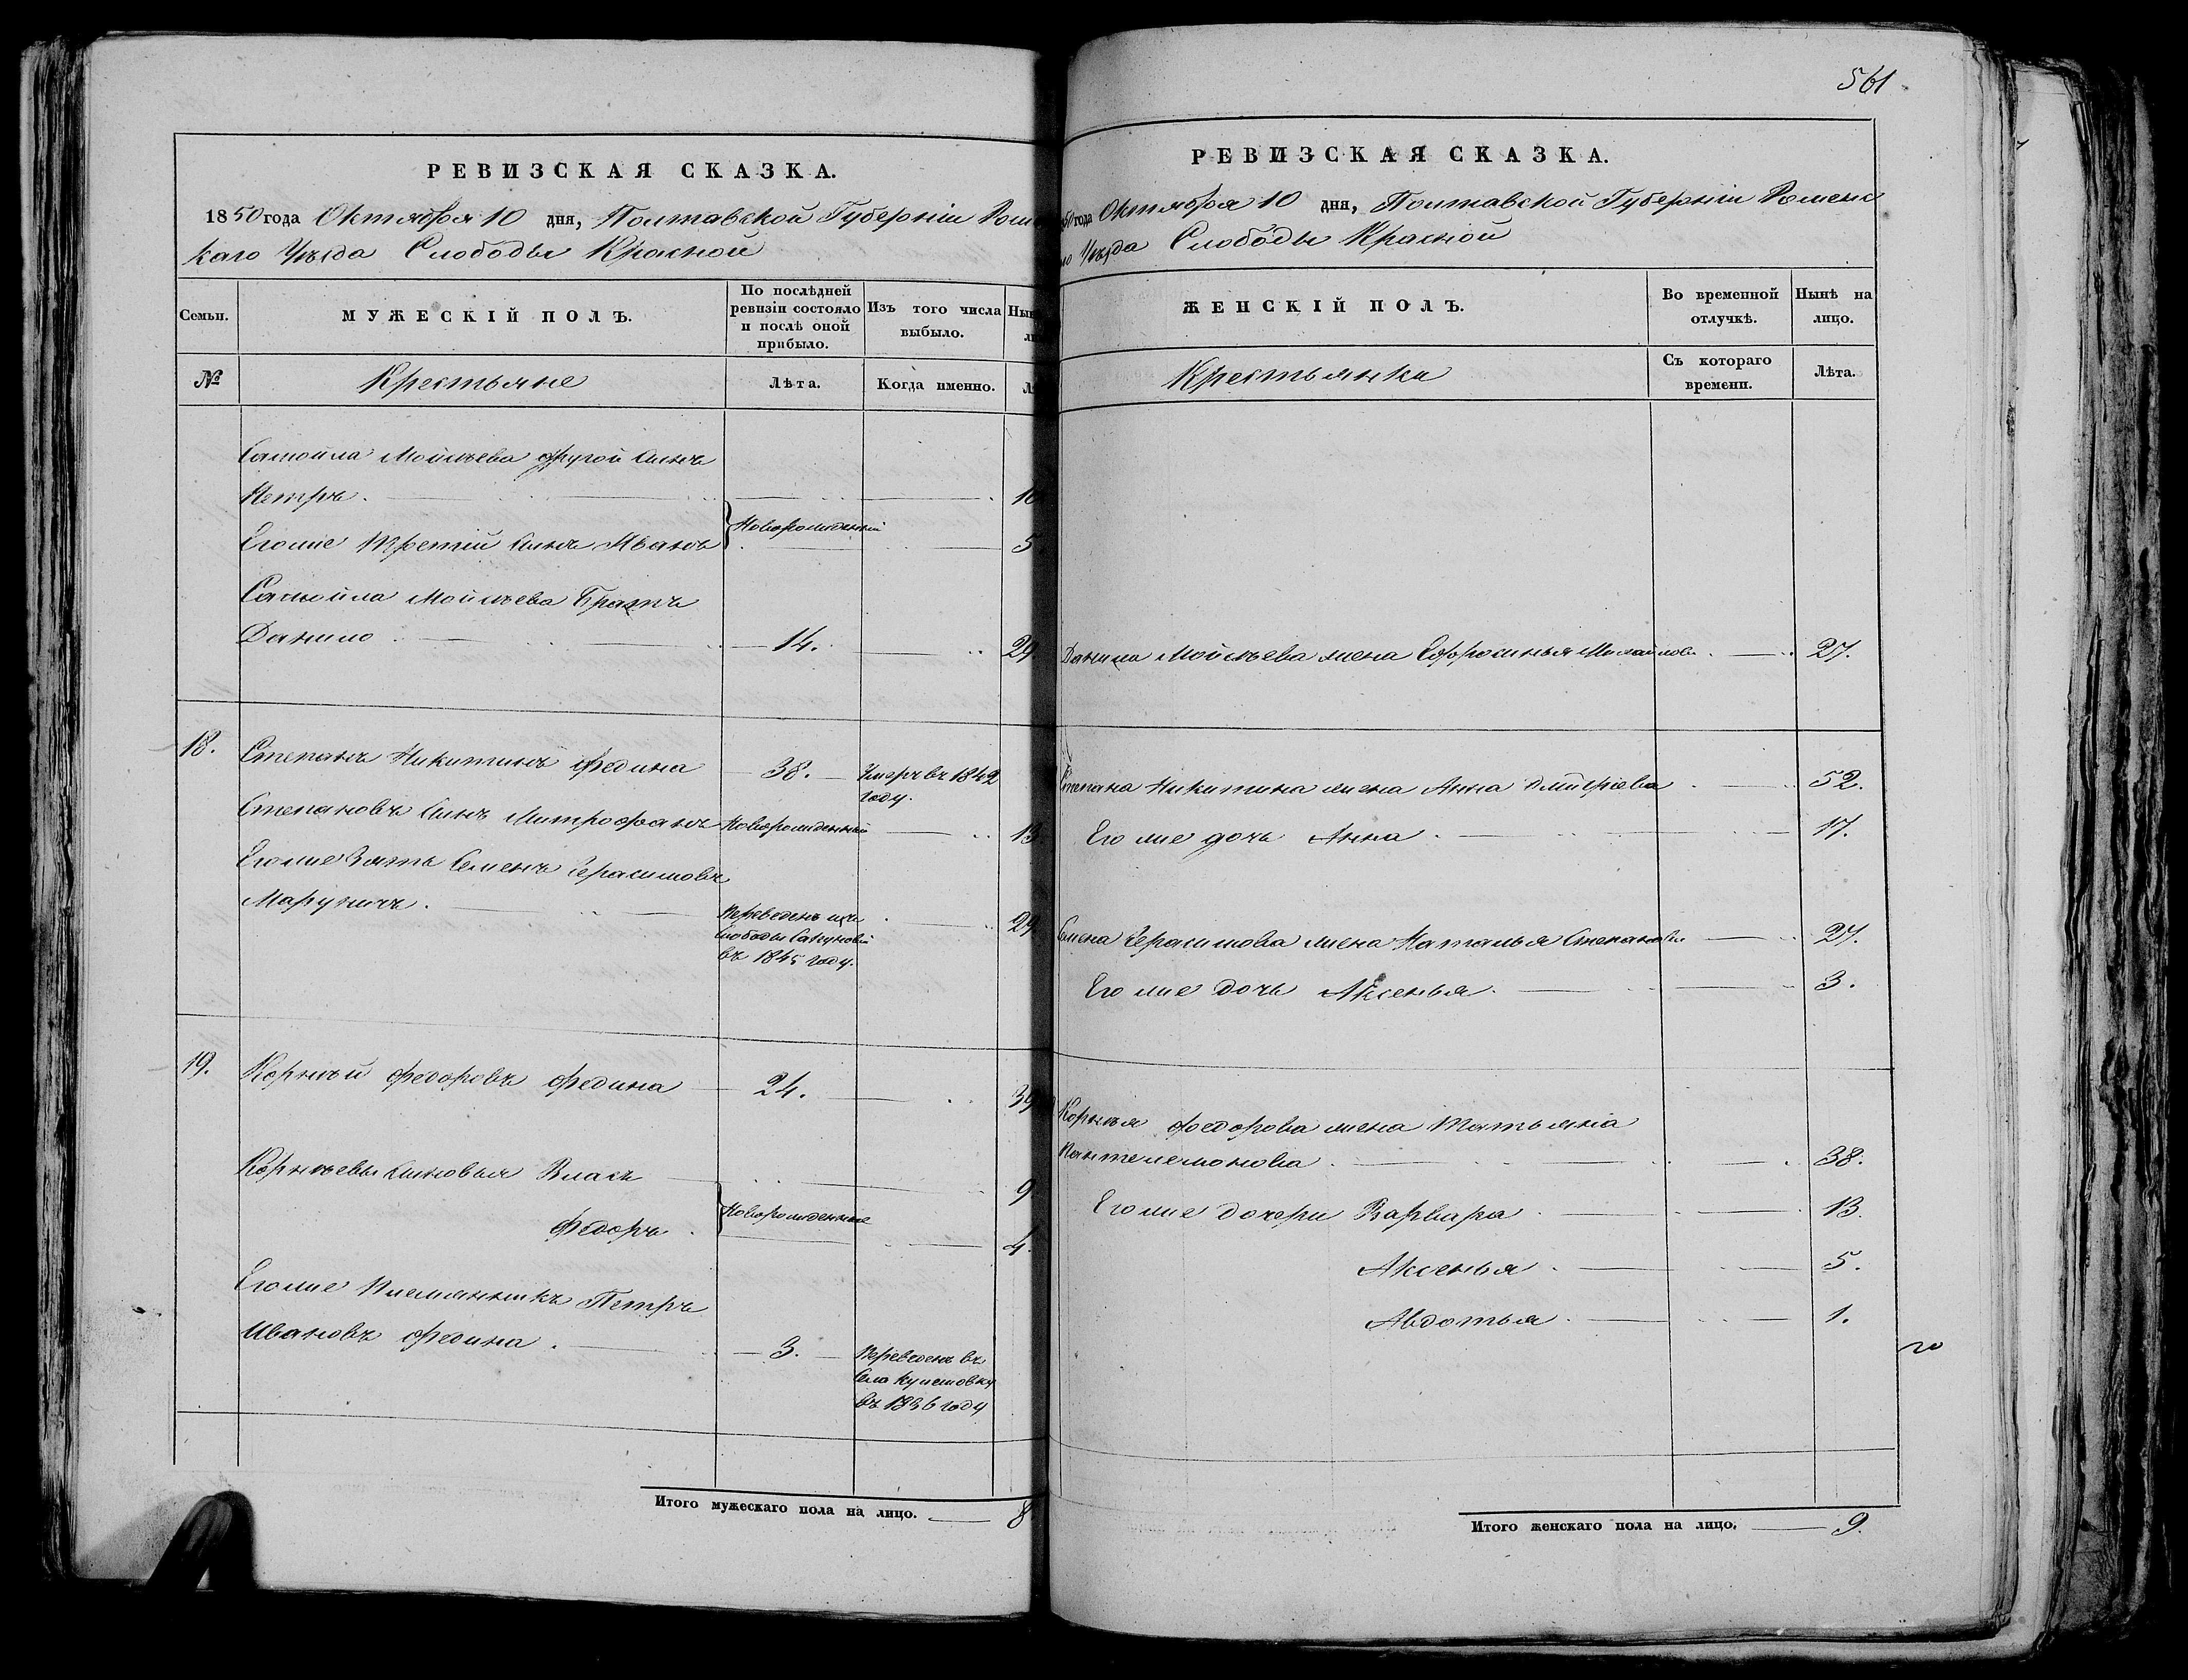 РЕВИЗСКАЯ СКАЗКА.
1850 года Октября 10 дня, Полтавской Губерніи Роме
каго Уѣзда Слободы Красной
Семьи.
МУЖЕСКІЙ ПОЛЪ.
По послѣдней
ревизіи состояло
и послѣ оной
прибыло.
Изъ того числа
выбыло.
№
Крестьяне
Лѣта.
Когда именно.
Самойла Мойсѣева другой сынъ
Петръ. 10
Новорожденный
Егоже третій сынъ Иванъ 5
Самойла Мойсѣева Братъ
Данило 14. 29
18. Степанъ Никитинъ Федина 38. Умеръ въ 1842
году.
Степановъ сынъ Митрофанъ Новорожденный 13
Егоже Зять Семенъ Герасимовъ
Маруничъ. 29
Переведенъ изъ
Слободы
въ 1845 году.
19. Корнѣй Федоровъ Федина 24. 39
Корнѣевы сыновья Власъ 9
Новорожденные
Федоръ. 4.
Егоже Племянникъ Петръ
Ивановъ Федина. 3. Переведенъ въ
Село
въ 1836 году
Итого мужескаго пола на лицо. 8
561
РЕВИЗСКАЯ СКАЗКА.
50 года Октября 10 дня, Полтавской Губерніи Роменс
го Уѣзда Слободы Красной
ЖЕНСКІЙ ПОЛЪ.
Во временной
отлучкѣ.
Нынѣ на
лицо.
Крестьянки
Съ котораго
времени.
Лѣта.
Данила Мойсѣева жена Ефросинья Михайлова 27.
Степана Никитина жена Анна Дмитріева 52.
Егоже дочь Анна 17.
Семена Герасимова жена Наталья Степанова 27.
Егоже дочь Аксенья. 3.
Корнѣя Федорова жена Татьяна
Пантелемонова. 38.
Егоже дочери Варвара 13.
Аксенья 5.
Авдотья 1.
Итого женскаго пола на лицо. 9.